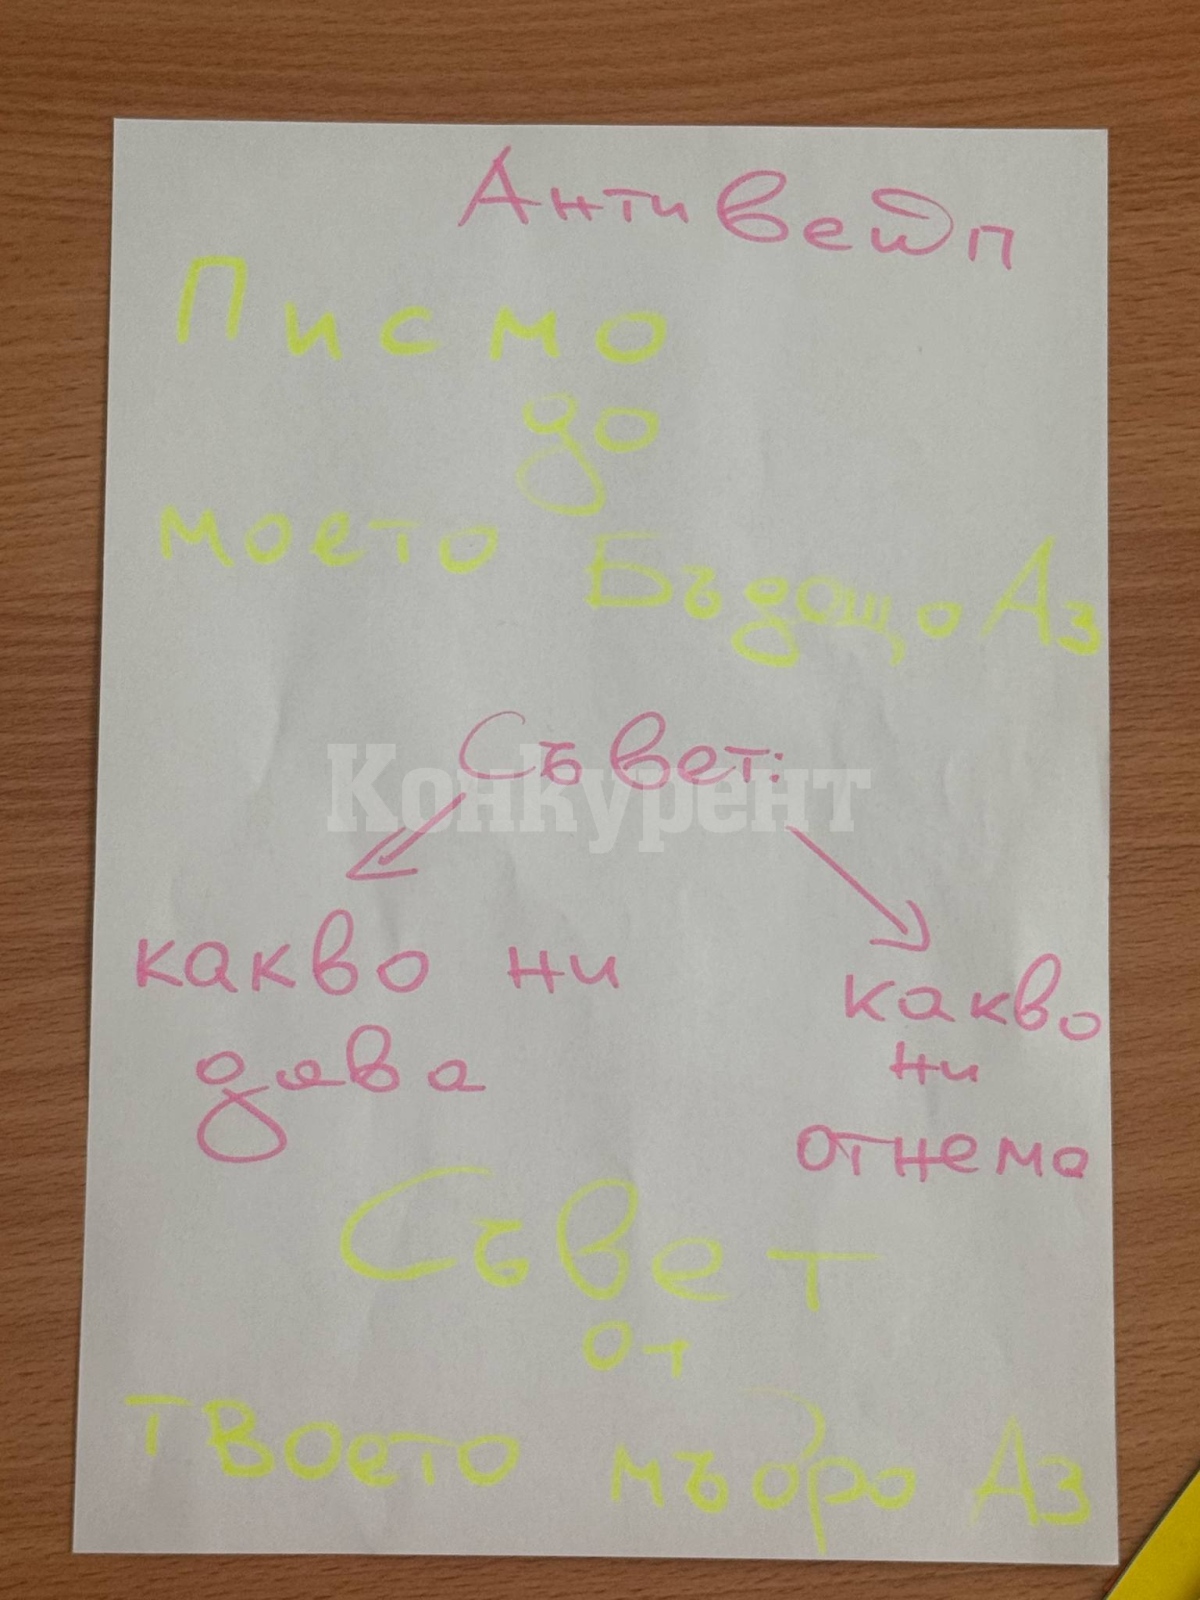 АнтиВейп
Писмо
до
моето Бъдощо Аз
Съвет:
Конкурент
какво ни
дава
какво
ни
отнема
Съвет
от
твоето мъдро Аз